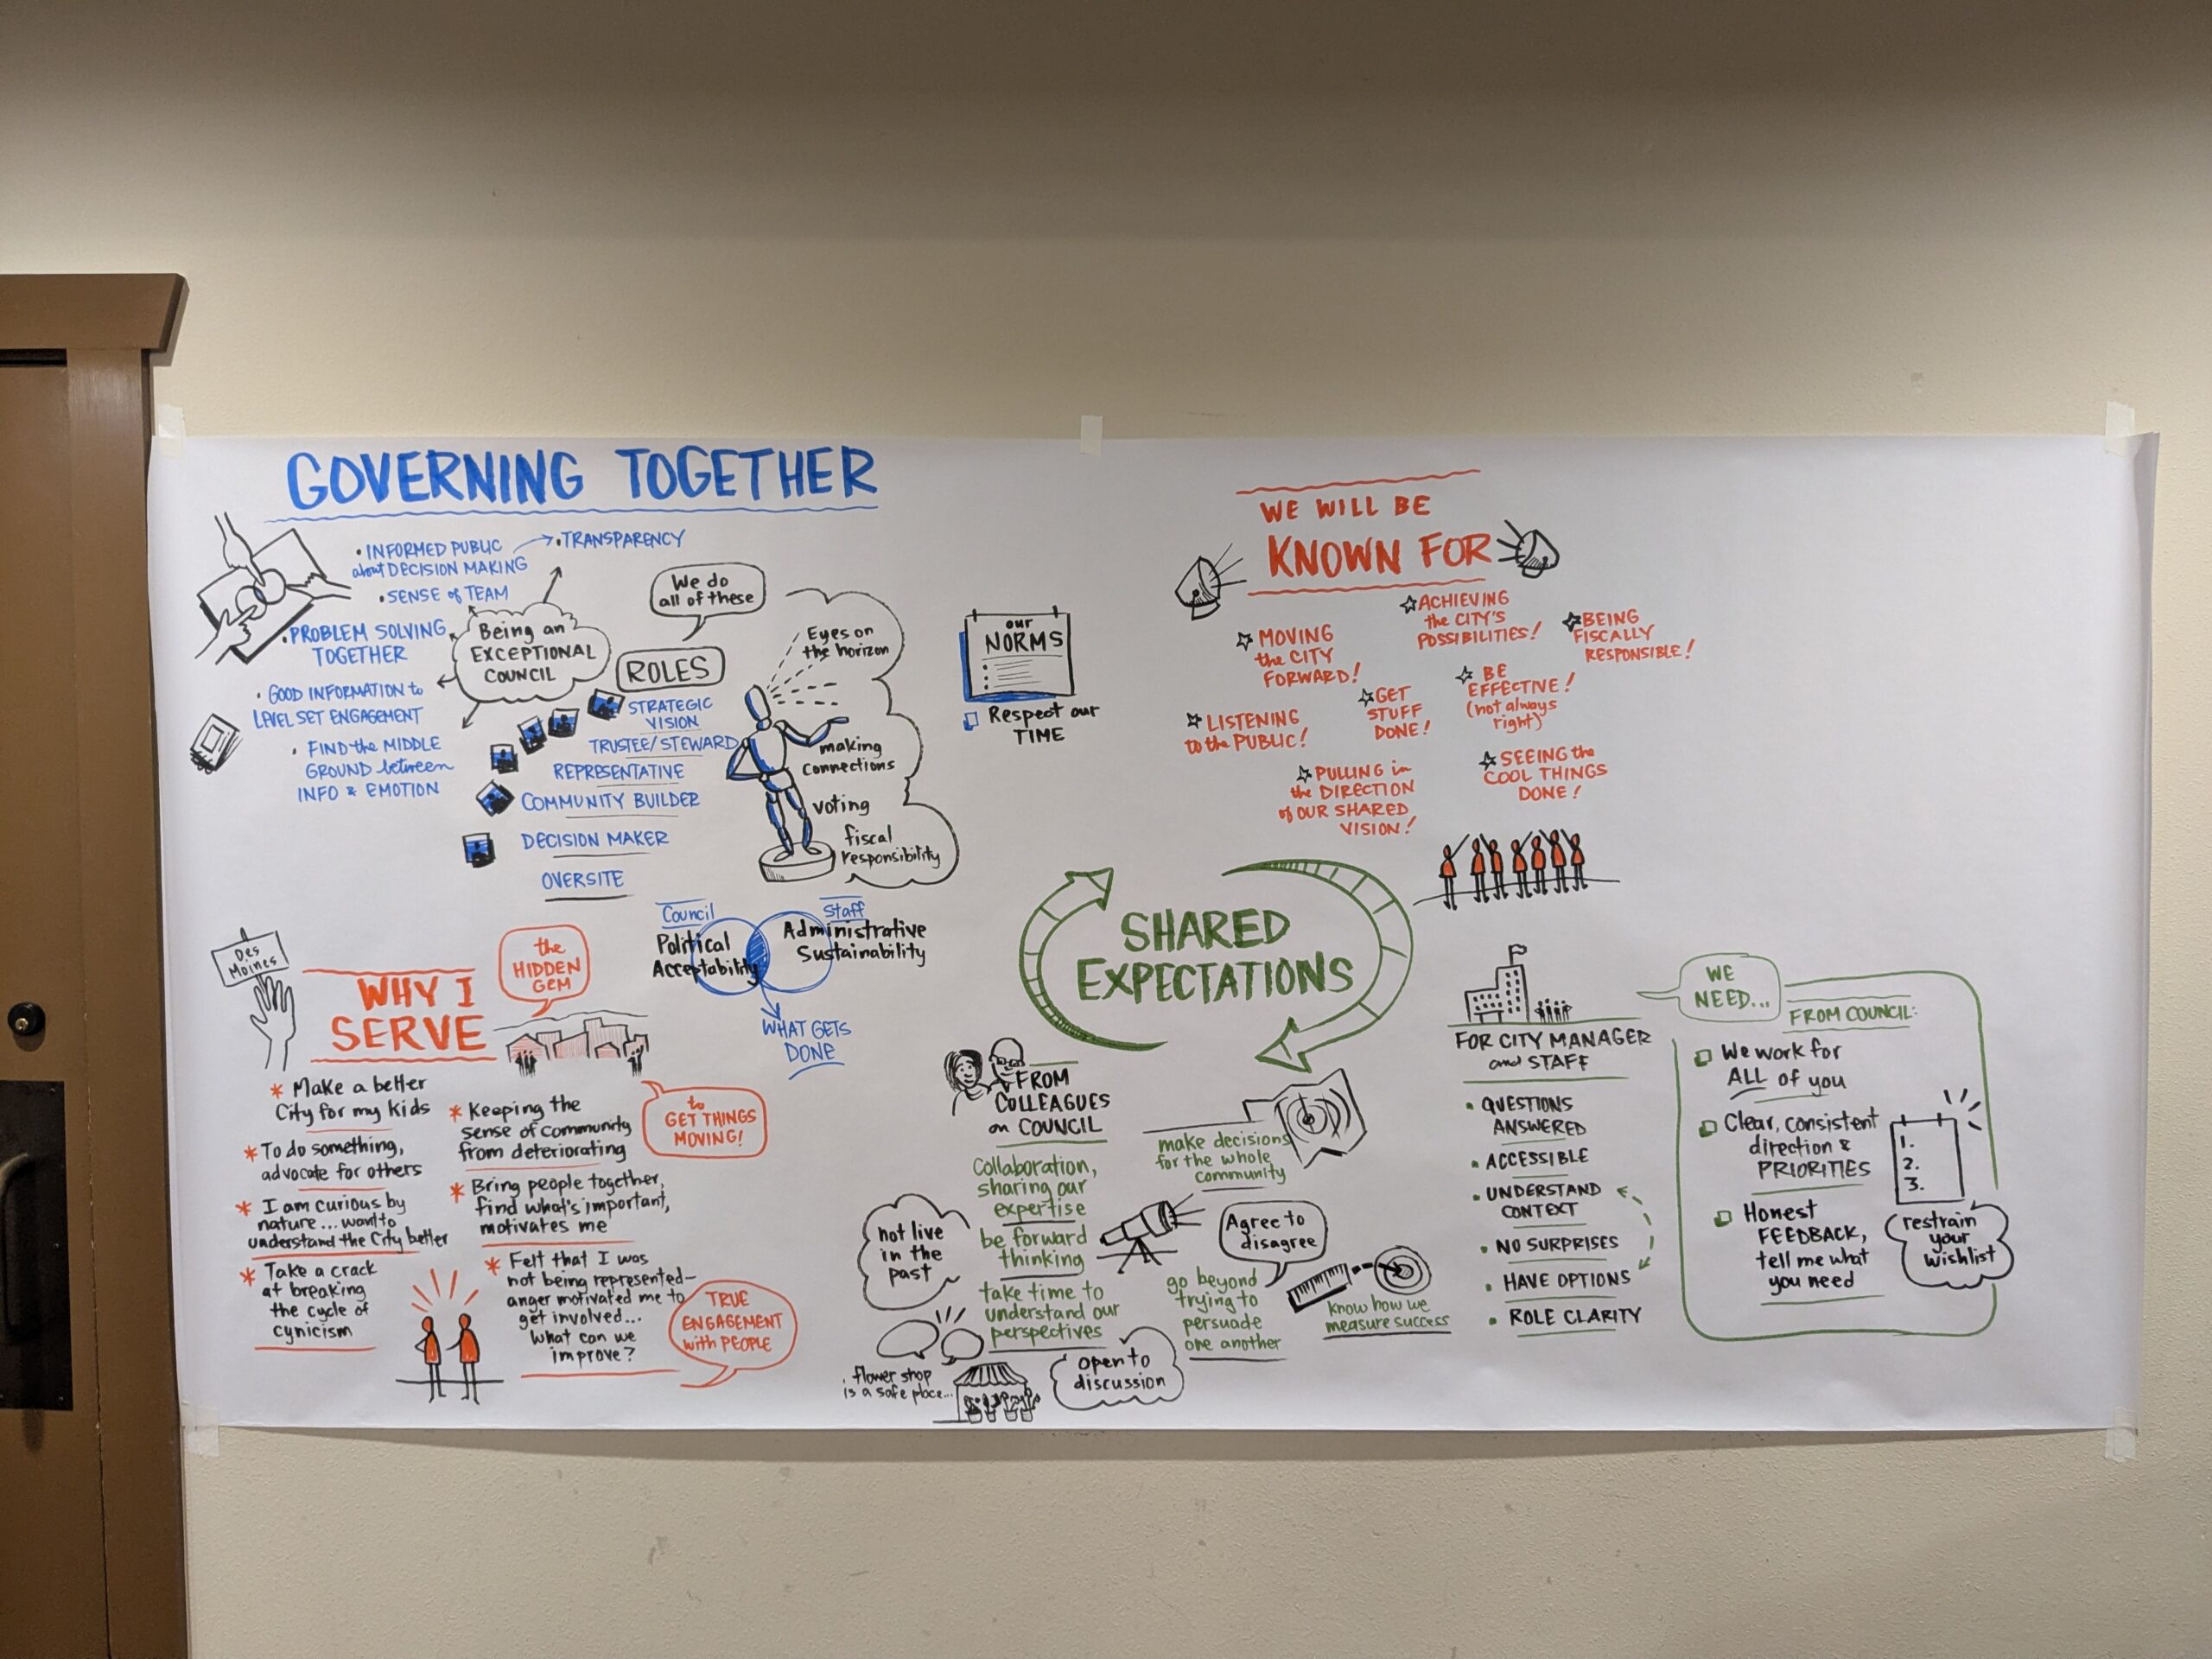 GOVERNING TOGETHER
• INFORMED PUBLIC
about DECISION MAKING
• TRANSPARENCY
• SENSE of TEAM
• PROBLEM SOLVING
TOGETHER
Being an
EXCEPTIONAL
COUNCIL
• GOOD INFORMATION to
LEVEL SET ENGAGEMENT
• FIND the MIDDLE
GROUND between
INFO & EMOTION
We do
all of these
ROLES
STRATEGIC
VISION
TRUSTEE/STEWARD
REPRESENTATIVE
COMMUNITY BUILDER
DECISION MAKER
OVERSITE
Eyes on
the horizon
making
connections
voting
fiscal
responsibility
Council
Political
Acceptability
Staff
Administrative
Sustainability
WHAT GETS
DONE
our
NORMS
Respect our
TIME
WE WILL BE
KNOWN FOR
MOVING
the CITY
FORWARD!
ACHIEVING
the CITY'S
POSSIBILITIES!
BEING
FISCALLY
RESPONSIBLE!
LISTENING
to the PUBLIC!
GET
STUFF
DONE!
BE
EFFECTIVE!
(not always
right)
PULLING in
the DIRECTION
of OUR SHARED
VISION!
SEEING the
COOL THINGS
DONE!
Des
Moines
WHY I
SERVE
the
HIDDEN
GEM
* Make a better
City for my kids
* To do something,
advocate for others
* I am curious by
nature... want to
understand the City better
* Take a crack
at breaking
the cycle of
cynicism
* Keeping the
sense of community
from deteriorating
* Bring people together,
find what's important,
motivates me
* Felt that I was
not being represented-
anger motivated me to
get involved...
What can we
improve?
to
GET THINGS
MOVING!
TRUE
ENGAGEMENT
with PEOPLE
SHARED
EXPECTATIONS
FROM
COLLEAGUES
on COUNCIL
Collaboration,
sharing our
expertise
be forward
thinking
take time to
understand our
perspectives
not live
in the
past
. flower shop
is a safe place...
open to
discussion
make decisions
for the whole
community
Agree to
disagree
go beyond
trying to
persuade
one another
know how we
measure success
FOR CITY MANAGER
and STAFF
• QUESTIONS
ANSWERED
• ACCESSIBLE
• UNDERSTAND
CONTEXT
• NO SURPRISES
• HAVE OPTIONS
• ROLE CLARITY
WE
NEED...
FROM COUNCIL:
We work for
ALL of you
Clear, consistent
direction &
PRIORITIES
Honest
FEEDBACK,
tell me what
you need
1.
2.
3.
restrain
your
wishlist